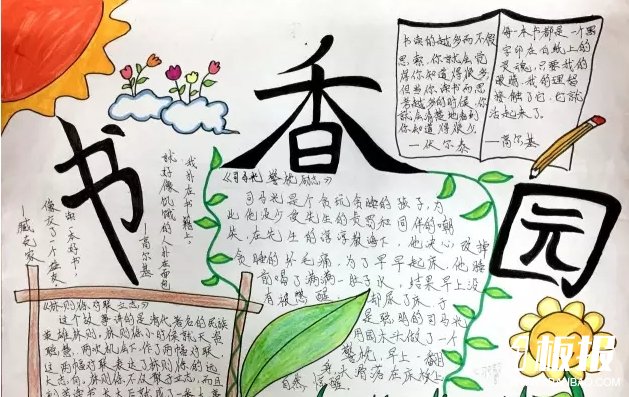 书香园
书读的越多而不假
思索,你就会觉
得你知道得很多
但当你读书而思
考越多的时候,你
就会清楚地看到
你知道得很少
—伏尔泰
每一本书都是一个黑
字印在白纸上的
灵魂,只要我的
眼睛、我的理智
接触了它,它就
活起来了。
—高尔基
我扑在书籍上
就好像饥饿的人扑在面包
—高尔基
读一本好书,
像交了一个益友
—臧克家
《司马光》警枕励志》
司马光是个贪玩贪睡的孩子,为
此他没少受先生的责罚和同伴的嘲
笑,在先生的谆谆教诲下,他决心改掉
贪睡的坏毛病,为了早早起床,他睡
前喝了满满一肚子水,结果早上没
有被憋醒,却尿了床,于
是聪明的司马光
用圆木头做了一个
警枕,早上一翻
身,头滑落在床板上
自然惊醒
《林则徐对联立志》
这个故事讲的是清代著名的民族
英雄林则徐,林则徐小的时候就天资
聪慧,两次机会下,作了两幅对联,
这两幅对联表达了林则徐的远
大志向,林则徐不仅敢于立志,而且
板报